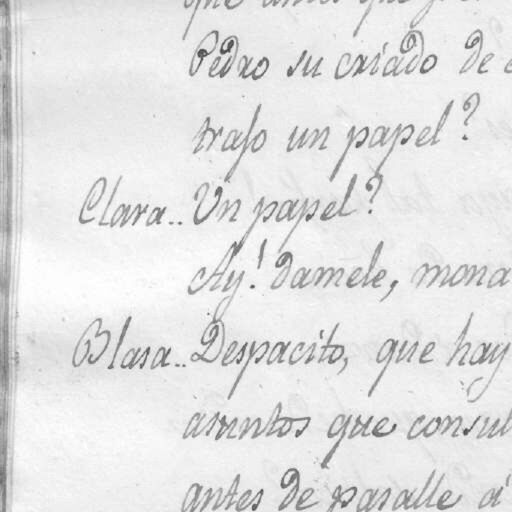 Pedro su criado de
trajo un papel?
Clara.. Un papel?
Ay! damele, mona
Blasa.. Despacito, que hay
asuntos que consul
antes de pasalle á